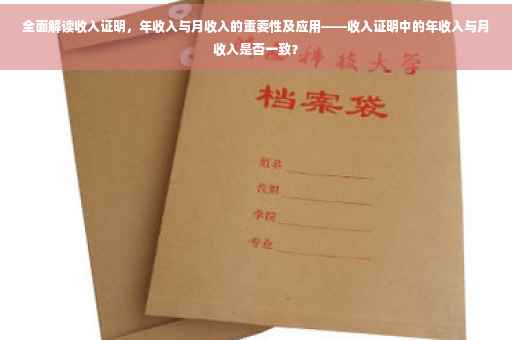 全面解读收入证明，年收入与月收入的重要性及应用——收入证明中的年收入与月
收入是否一致？
科技大学
档案袋
学院
专业